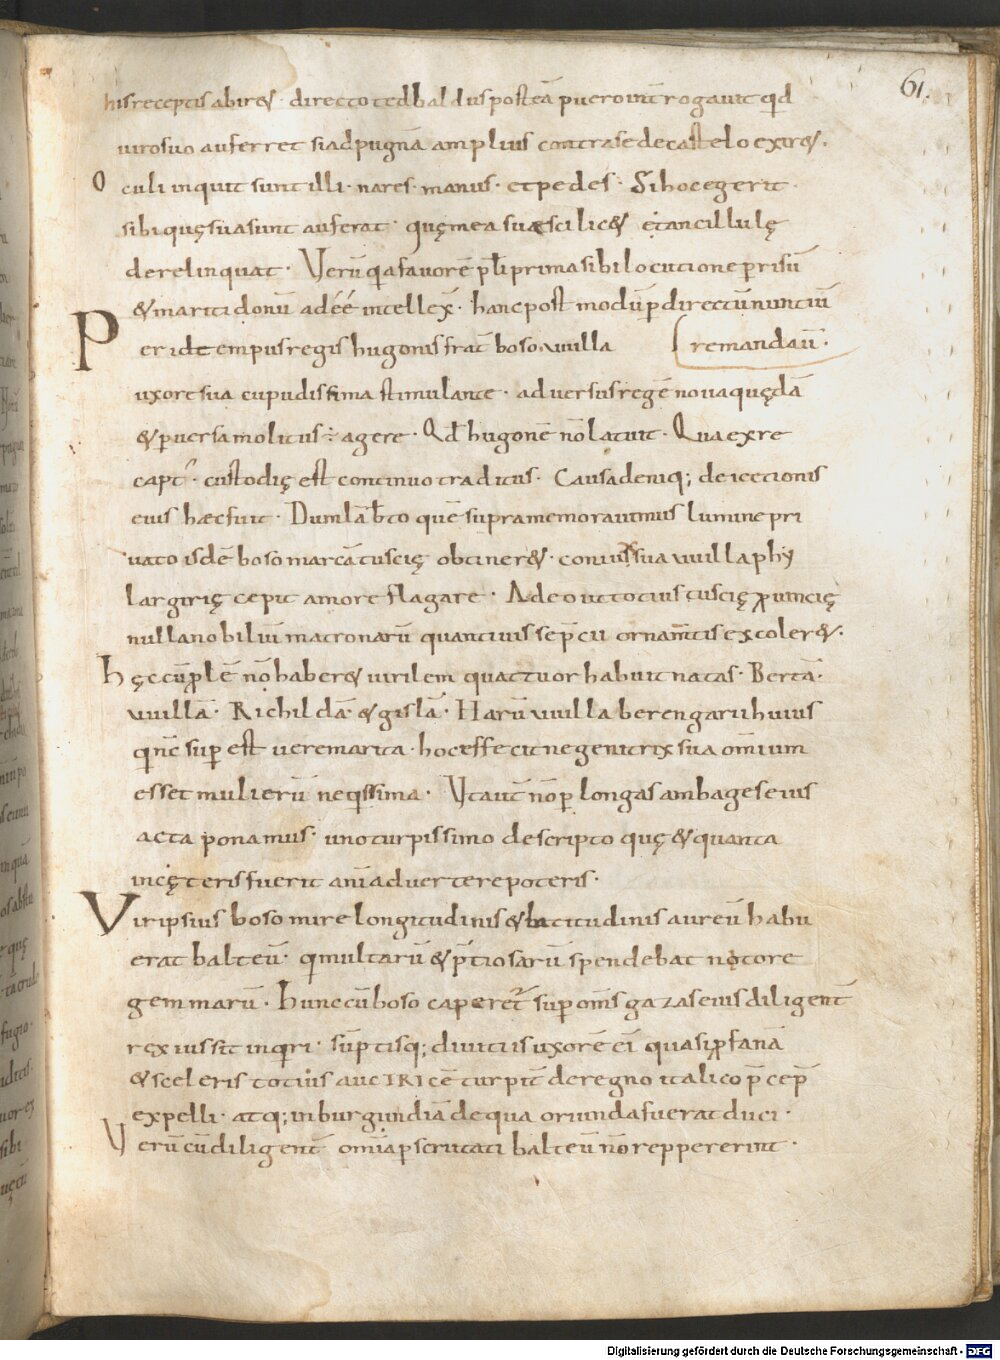 61.
his receptis abir&. directo tedbaldus posteā puero int̄rogauit qd
uiro suo auferret si ad pugnā amplius contra se de castelo exir&.
Oculi inquit sunt illi. nares. manus. et pedes. Si hoc egerit.
sibi quę sua sunt auferat. quę mea suæ scilic& & ancillulę
derelinquat. Verū qa fauorē p̄li prima sibi locutione p risū
& mariti donū adéé intellex̄. hanc post modū p directū nuntiū
[remandau̅.
Per idem tempus regis hugonis frat̄ boso wuilla
uxore sua cupudissima stimulante. aduersus regē noua quędā
& puersa molitus÷ agere. Qd hugonē nō latuit. Qua ex re
capt'. custodię est continuo traditus. Causa deniq; deiectionis
eius hæc fuit. Dum lāb̄to quē supra memorauimus lumine pri
uato isdē boso marcā tuscię obtiner&. coniux sua wuilla phy
largirię cepit amore flagare. Adeo ut totius tuscię puincię
nulla nobiliū matronarū quantiuis se p̄ciī ornam̄tis excoler&.
Hęc cū plē nō haber& uirilem quattuor habuit natas. Bertā.
wuillā. Richildā. & gislā. Harū wuilla berengarii huius
q nc̄ sup est ueremarita. hoc effecit ne genitrix sua omium
esset mulierū neqssima. Vt aut̄ nō p longas ambages eius
acta ponamus. uno turpissimo descripto quę & quanta
in cęteris fuerit animaduertere poteris.
Vir ipsius boso mire longitudinis & latitudinis aureū habu
erat balteū. q multarū & p̄tiosarū spendebat nitore
gemmarū. Hunc cū boso caperet' sup oms gazas eius diligent̄
rex iussit inqri. sūptisq; diuitiis uxorē ei quasi p fanā
& sceleris totius aucTRIcē turpit̄ de regno italico p̄cep̄
expelli. atq; in burgundiā de qua oriunda fuerat duci.
Verū cū diligent̄ omīa pscrutati balteū nō reppererint.
Digitalisierung gefördert durch die Deutsche Forschungsgemeinschaft - DFG